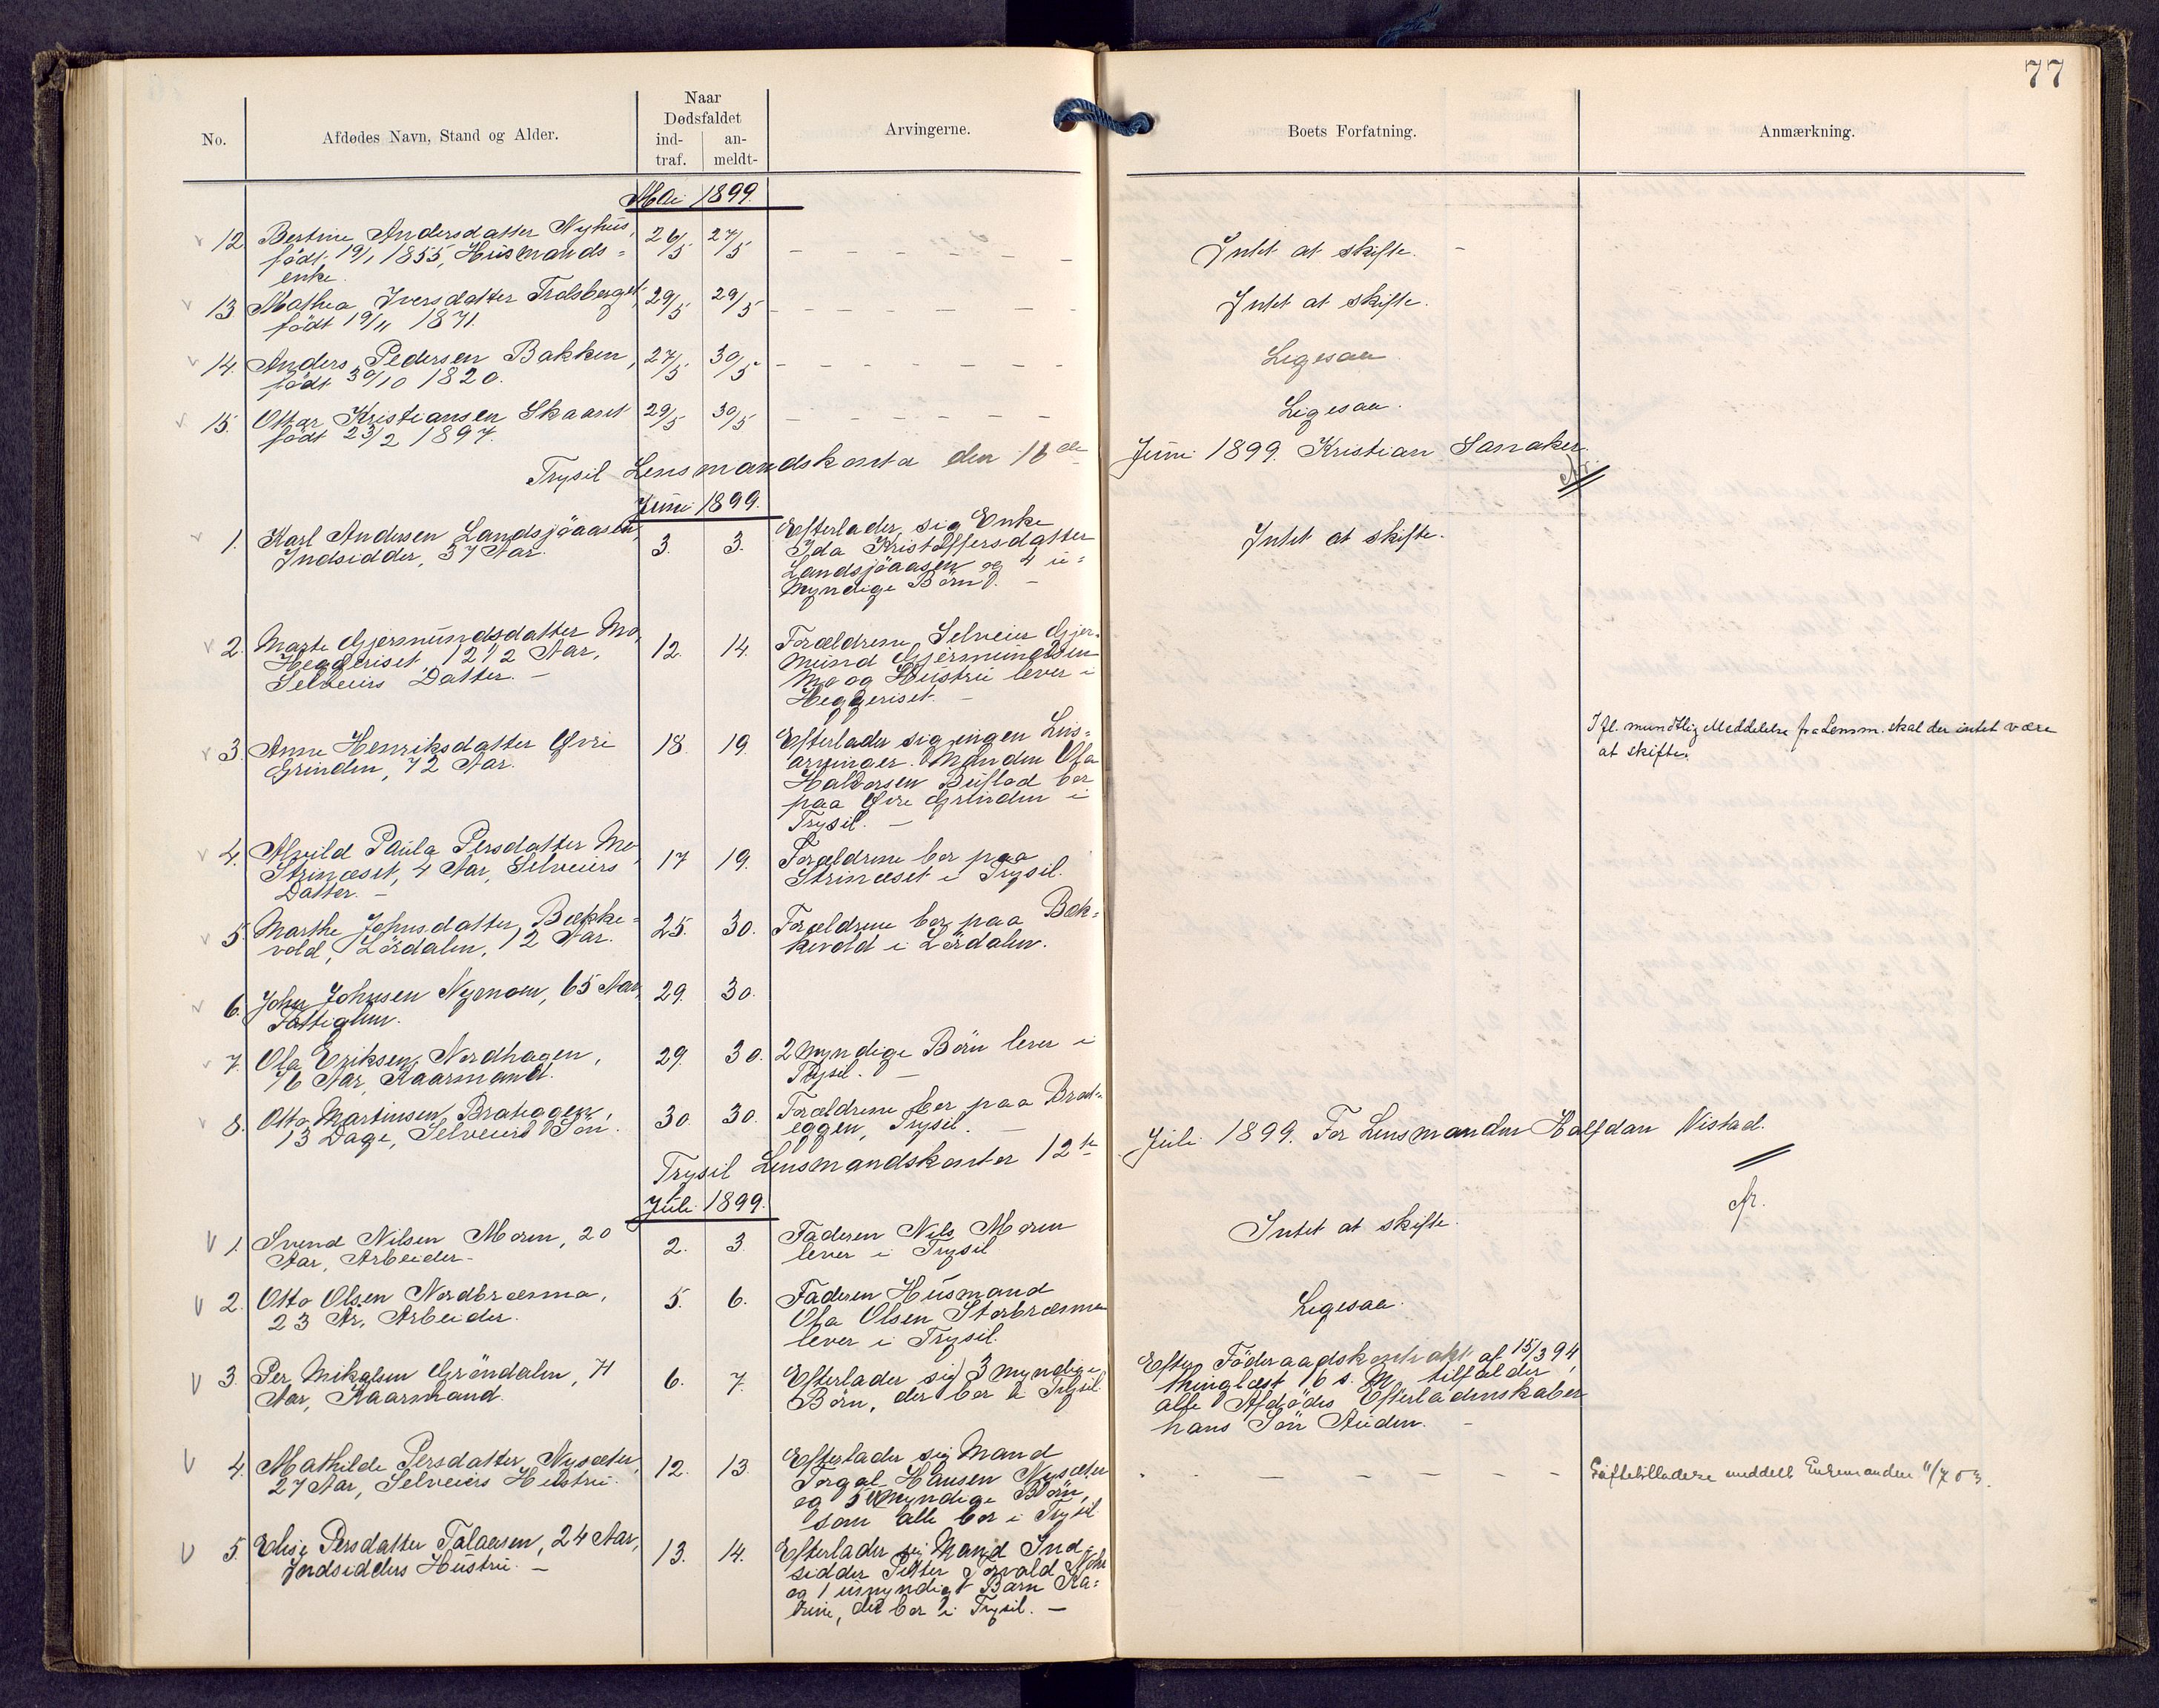 77
No.
Afdødes Navn, Stand og Alder.
Naar
Dødsfaldet
ind-
traf.
an-
meldt-
Arvingerne.
Boets Forfatning.
Anmærkning.
Mai 1899.
12. Bertine Andersdatter Nyhus, 26/5 27/5 — Intet at skifte. —
født 19/1 1855, Husmands=
enke.
13. Mathea Iversdatter 29/5 29/5 — Intet at skifte.
født 19/11 1871.
14. Anders Pedersen Bakken, 27/5 30/5 — Ligesaa
født 30/10 1820.
15. Ottar Kristiansen Skaaret 29/5 30/5 — Ligesaa.
født 23/2 1897.
Trysil Lensmandskontor den 16de Juni 1899. Kristian Sanaker.
Juni 1899.
1. Karl Andersen Landsjöaasen, 3. 3. Efterlader sig Enke Intet at skifte.
Indsidder, 37 Aar. Ida Kristoffersdatter
Landsjöaasen og 4 u=
myndige Børn. —
2. Marte Gjermundsdatter Mo, 12. 14. Forældrene Selveier Gjer=
Heggeriset, 12 1/2 Aar, mund Gjermundsen
Selveiers Datter. — Mo og Hustru lever i
Heggeriset. —
3. Anne Henriksdatter Øvre 18. 19. Efterlader sig ingen Livs= Ifl. mundtlig Meddelelse fra Lensm. skal der intet være
Grinden, 72 Aar. arvinger. Manden Ola at skifte.
Halvorsen Buflod bor
paa Øvre Grinden i
Trysil. —
4. Alvild Paula Persdatter Mo, 17 19. Forældrene bor paa
Strinæset, 4 Aar, Selveiers Strinæset i Trysil.
Datter. —
5. Marthe Johnsdatter Bække= 25. 30. Forældrene bor paa Bæk=
vold, Lördalen, 12 Aar. kevold i Lördalen.
6. John Johnsen Nymoen, 65 Aar, 29. 30.
Fattiglem.
7. Ola Eriksen Nordhagen, 29. 30. 2 myndige Børn lever i
76 Aar, Kaarmand. Trysil. —
8. Otto Martinsen Brateggen, 30. 30. Forældrene bor paa Brat=
13 Dage, Selveiers Sön. eggen, Trysil. —
Trysil Lensmandskontor 12te Juli 1899. For Lensmanden Halfdan Nistad.
Juli 1899.
1. Svend Nilsen Moren, 20 2. 3. Faderen Nils Moren Intet at skifte.
Aar, Arbeider. lever i Trysil
2. Otto Olsen Nordbrænna, 5. 6. Faderen Husmand Ligesaa.
23 Ar, Arbeider. Ola Olsen Storbrænna
lever i Trysil.
3. Per Mikalsen Gröndalen, 71 6. 7. Efterlader sig 3 myndige Efter Föderaadskontrakt af 15/3 94,
Aar, Kaarmand. Börn, der bor i Trysil thinglæst 16 s. M. tilfalder
alle Afdødes Efterladenskaber
hans Sön Auden. —
4. Mathilde Persdatter Nysæter, 12. 13. Efterlader sig Mand — Skiftetilladelse meddelt Enkemanden 11/7 03.
27 Aar, Selveiers Hustru. Torgal Hansen Nysæter
og 5 umyndige Børn,
som alle bor i Trysil
5. Elise Persdatter Tolaasen, 24 Aar, 13. 14. Efterlader sig Mand Ind=
Indsidders Hustru. — sidder Petter Torvald
og 1 umyndigt Barn Ka=
trine, der bor i Trysil. —